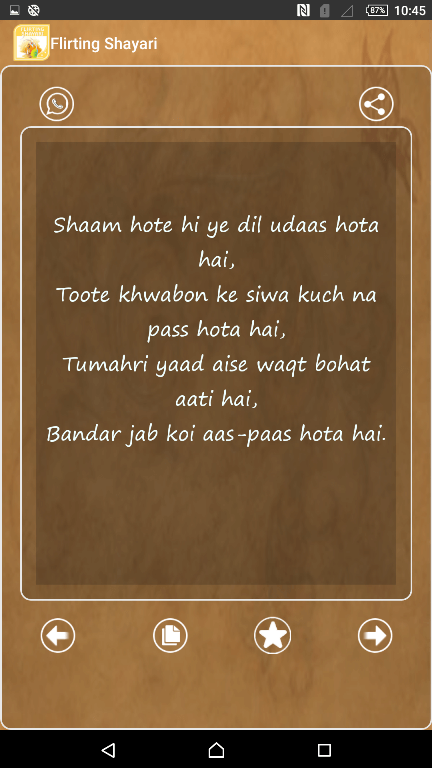 87%
10:45
Flirting Shayari
Shaam hote hi ye dil udaas hota
hai,
Toote khwabon ke siwa kuch na
pass hota hai,
Tumahri yaad aise waqt bohat
aati hai,
Bandar jab koi aas-paas hota hai.